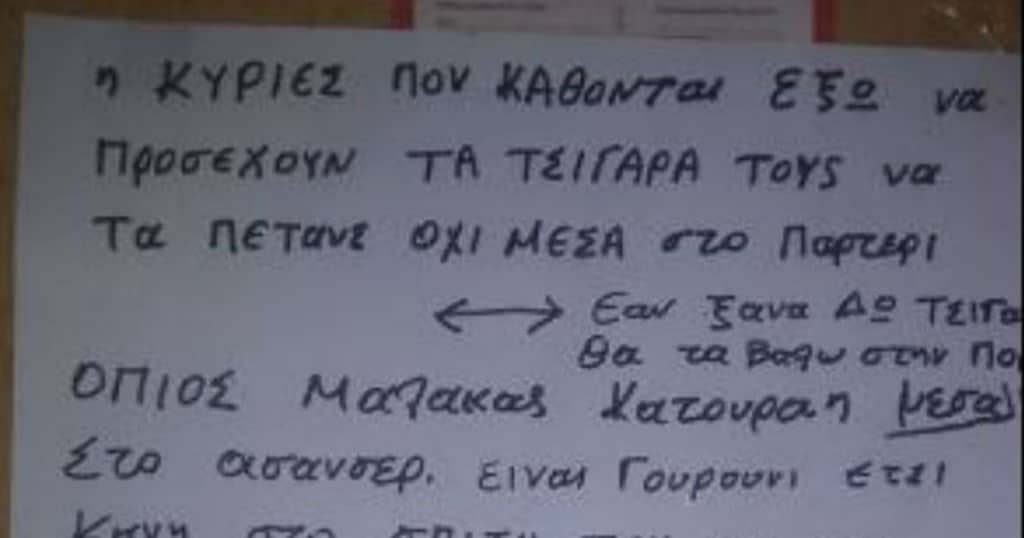 η ΚΥΡΙΕΣ ΠΟΥ ΚΑΘΟΝΤαι ΕξΩ να
ΠροσεχουΝ ΤΑ ΤΣΙΓΑΡΑ ΤΟΥΣ να
Τα ΠΕΤανε ΟΧΙ ΜΕΣΑ στο Παρτερι
Εαν ξανα ΔΩ
Θα τα Βαλω στην
ΟΠΙΟΣ Μαλακας Κατουραη μεσα
Στο ασανσερ. ειναι Γουρουνι ετσι
Κανη στο σπιτι του